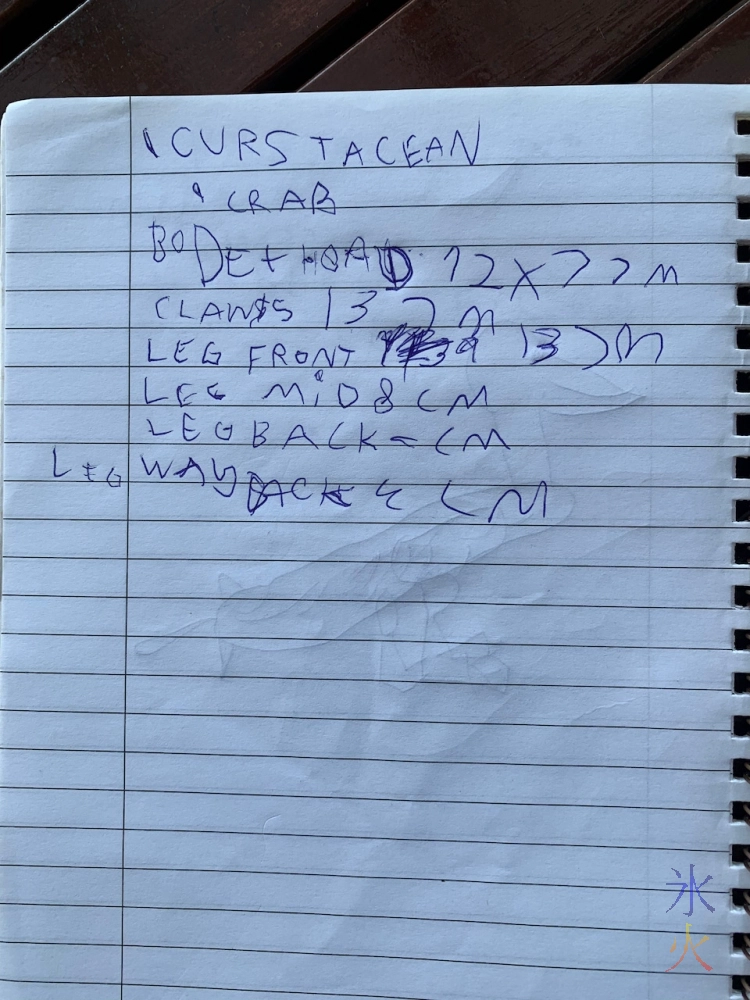 CURSTACEAN
CRAB
BODE + HOAD 12X7
CLAWS 13
LEG FRONT 13
LEG MiD 8 CM
LEG BACK CM
LEG WAY BACK CM
氷
火